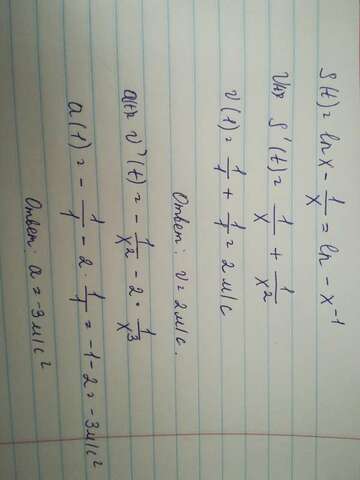 S(t) = ln x - 1/x = ln - x⁻¹
V(t)= S'(t) = 1/x + 1/x²
v(1) = 1/1 + 1/1 = 2 м/с
Ответ: v = 2 м/с.
a(t)= v'(t) = - 1/x² - 2 · 1/x³
a(1) = - 1/1 - 2 · 1/1 = -1 - 2 = -3 м/с²
Ответ: a = -3 м/с²